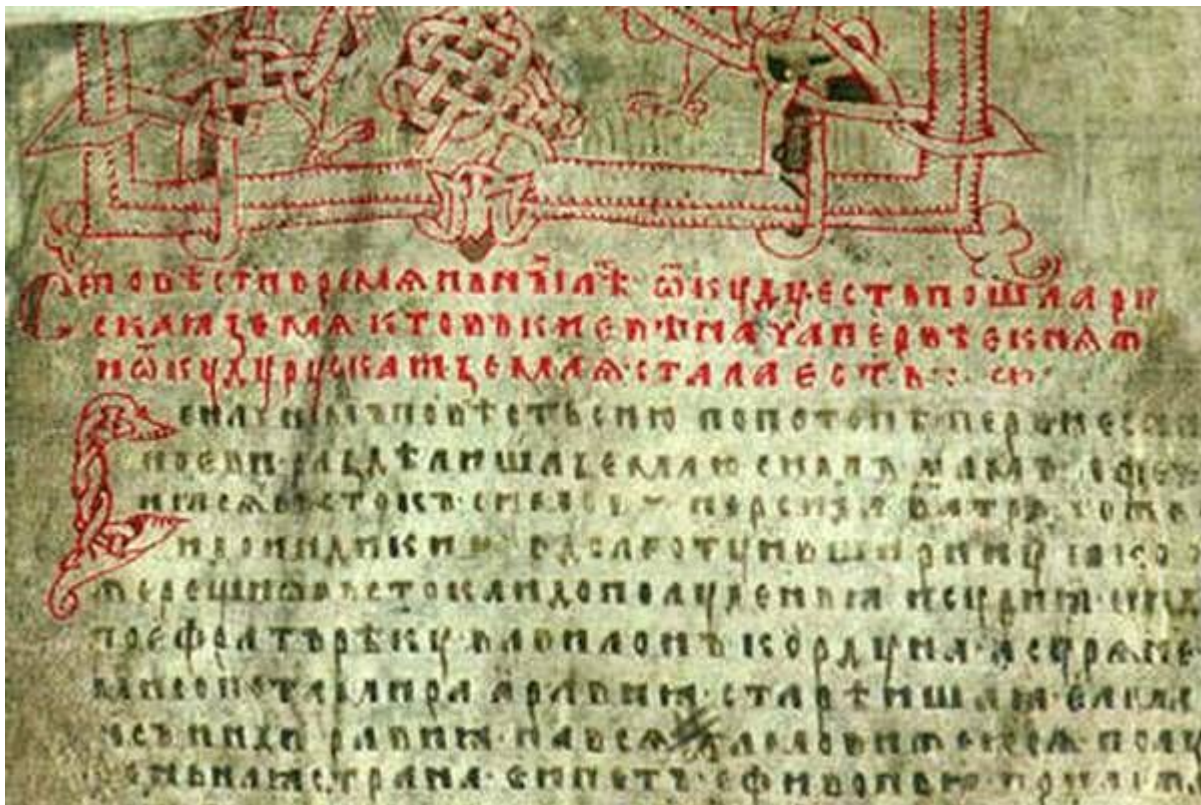 С повѣст времѧньнꙑⷯ лѣⷮ ѿкуду єсть пошла ру
скаꙗ земѧ кто въ києвѣ нача первѣє кнѧж
и ѿкуду рускаꙗ землѧ стала єсть
повѣсть сию по потопѣ
ноєви раздѣлиша землю симъ хамъ афе
ꙗсѧ въстокъ симови персида ватрь тоже
и до индикиꙗ в долготу и въ ширину ꙗко
же рещи ѿ въстока и до полуденьꙗ и суриꙗ
по єфратъ рѣку вавилонъ кордуна асурѧне
мисопотамира аравиꙗ старѣишаꙗ єлма
исъ инди равиꙗ на всѧ
страна єгипетъ єфивопь